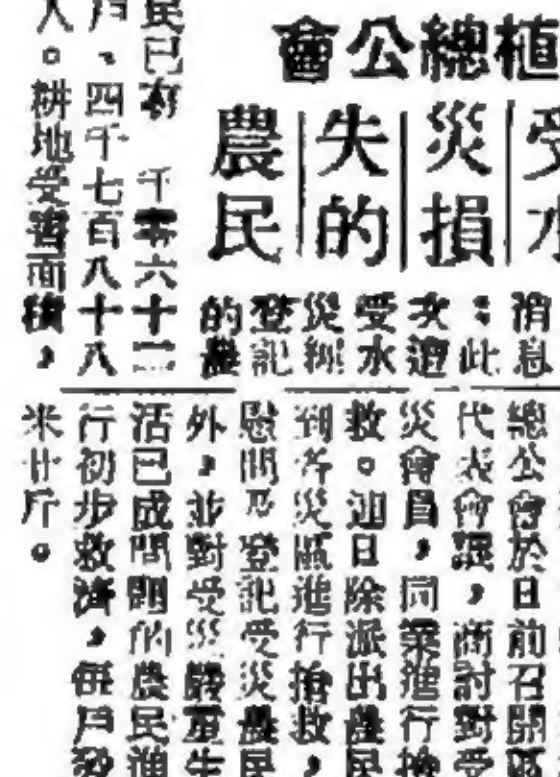 植總公會
受水
災損
失的
農民
消息
：此
次遭
受水
災經
登記
的農
民已有 千零六十二
戶、四千七百八十八
人。耕地受害面積，
總公會於日前召開區
代表會議，商討對受
災會員，同業進行搶
救。連日除派出農民
到各災區進行搶救，
慰問及登記受災農民
外，並對受災嚴重生
活已成問題的農民進
行初步救濟，每戶發
米廿斤。